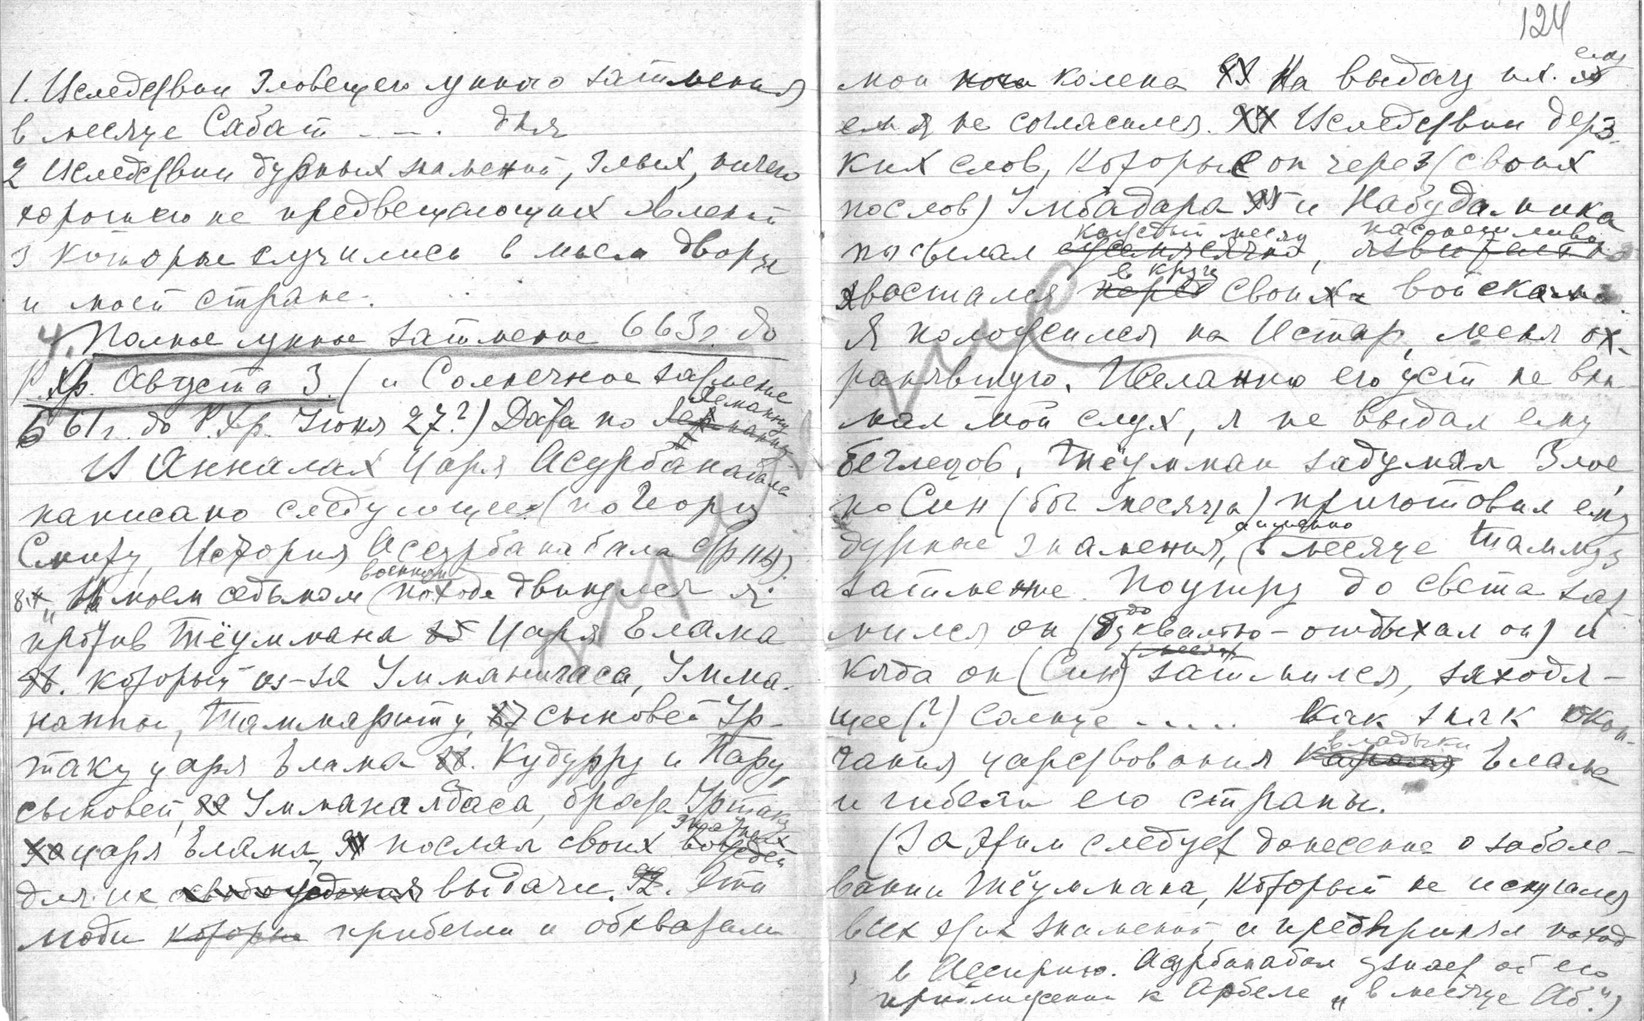 1. Вследствии зловещего лунного затмения
в месяце Сабат – – . дня
2 Вследствии дурных знамений, злых, ничего
хорошего не предвещающих явлений
3 которые случились в моем дворце
и моей стране.
4. Полное лунное затмение 663 г. до
Р. Хр. Августа 3. (и Солнечное затмение
661 г. до Р. Хр. Июня 27?) Дата по Леманну
В Анналах царя Асурбанабала
написано следующее (по Георгу
Смиту, История Асурбанабала стр 118).
84 „В моем седьмом военном походе двинулся я
против Тёуммана 85 царя Елама
86. который из-за Умманигаса, Умма-
наппы, Таммариту, 87 сыновей Ур-
таку царя Елама 88. Кудурру и Пару
сыновей, 89 Умманалдаса, брата Уртаку
90 царя Елама, 91 послал своих знатных
для их выдачи. 92. Эти
люди которые прибегли и обхватали
124
мои ноги колена 93 На выдачу их. ему
я не согласился. 94 Вследствии дерз-
ких слов, которые он через (своих
послов) Умбадара 95 и Набудамика
посылал каждый месяц, настойчиво
хвастался в кругу своих войсках.
Я положился на Истар, меня ох-
ранявшую. Желанию его уст не вни-
мал мой слух, я не выдал ему
беглецов. Тёумман задумал злое,
но Син (бог месяца) приготовил ему
дурные знамения, (а именно в месяце Таммуз
затмение. Поутру до света зат-
мился он (буквально – отдыхал он) и
когда он (Син) затмился, заходя-
щее (?) солнце ..... Как знак окон-
чания царствования владыки Елама
и гибели его страны.
(За этим следует донесение о заболе-
вании Тёуммана, который не испугался
всех этих знамений, и предпринял поход
в Ассирию. Асурбанабал узнает об его
приближении к Арбеле „в месяце Аб.")